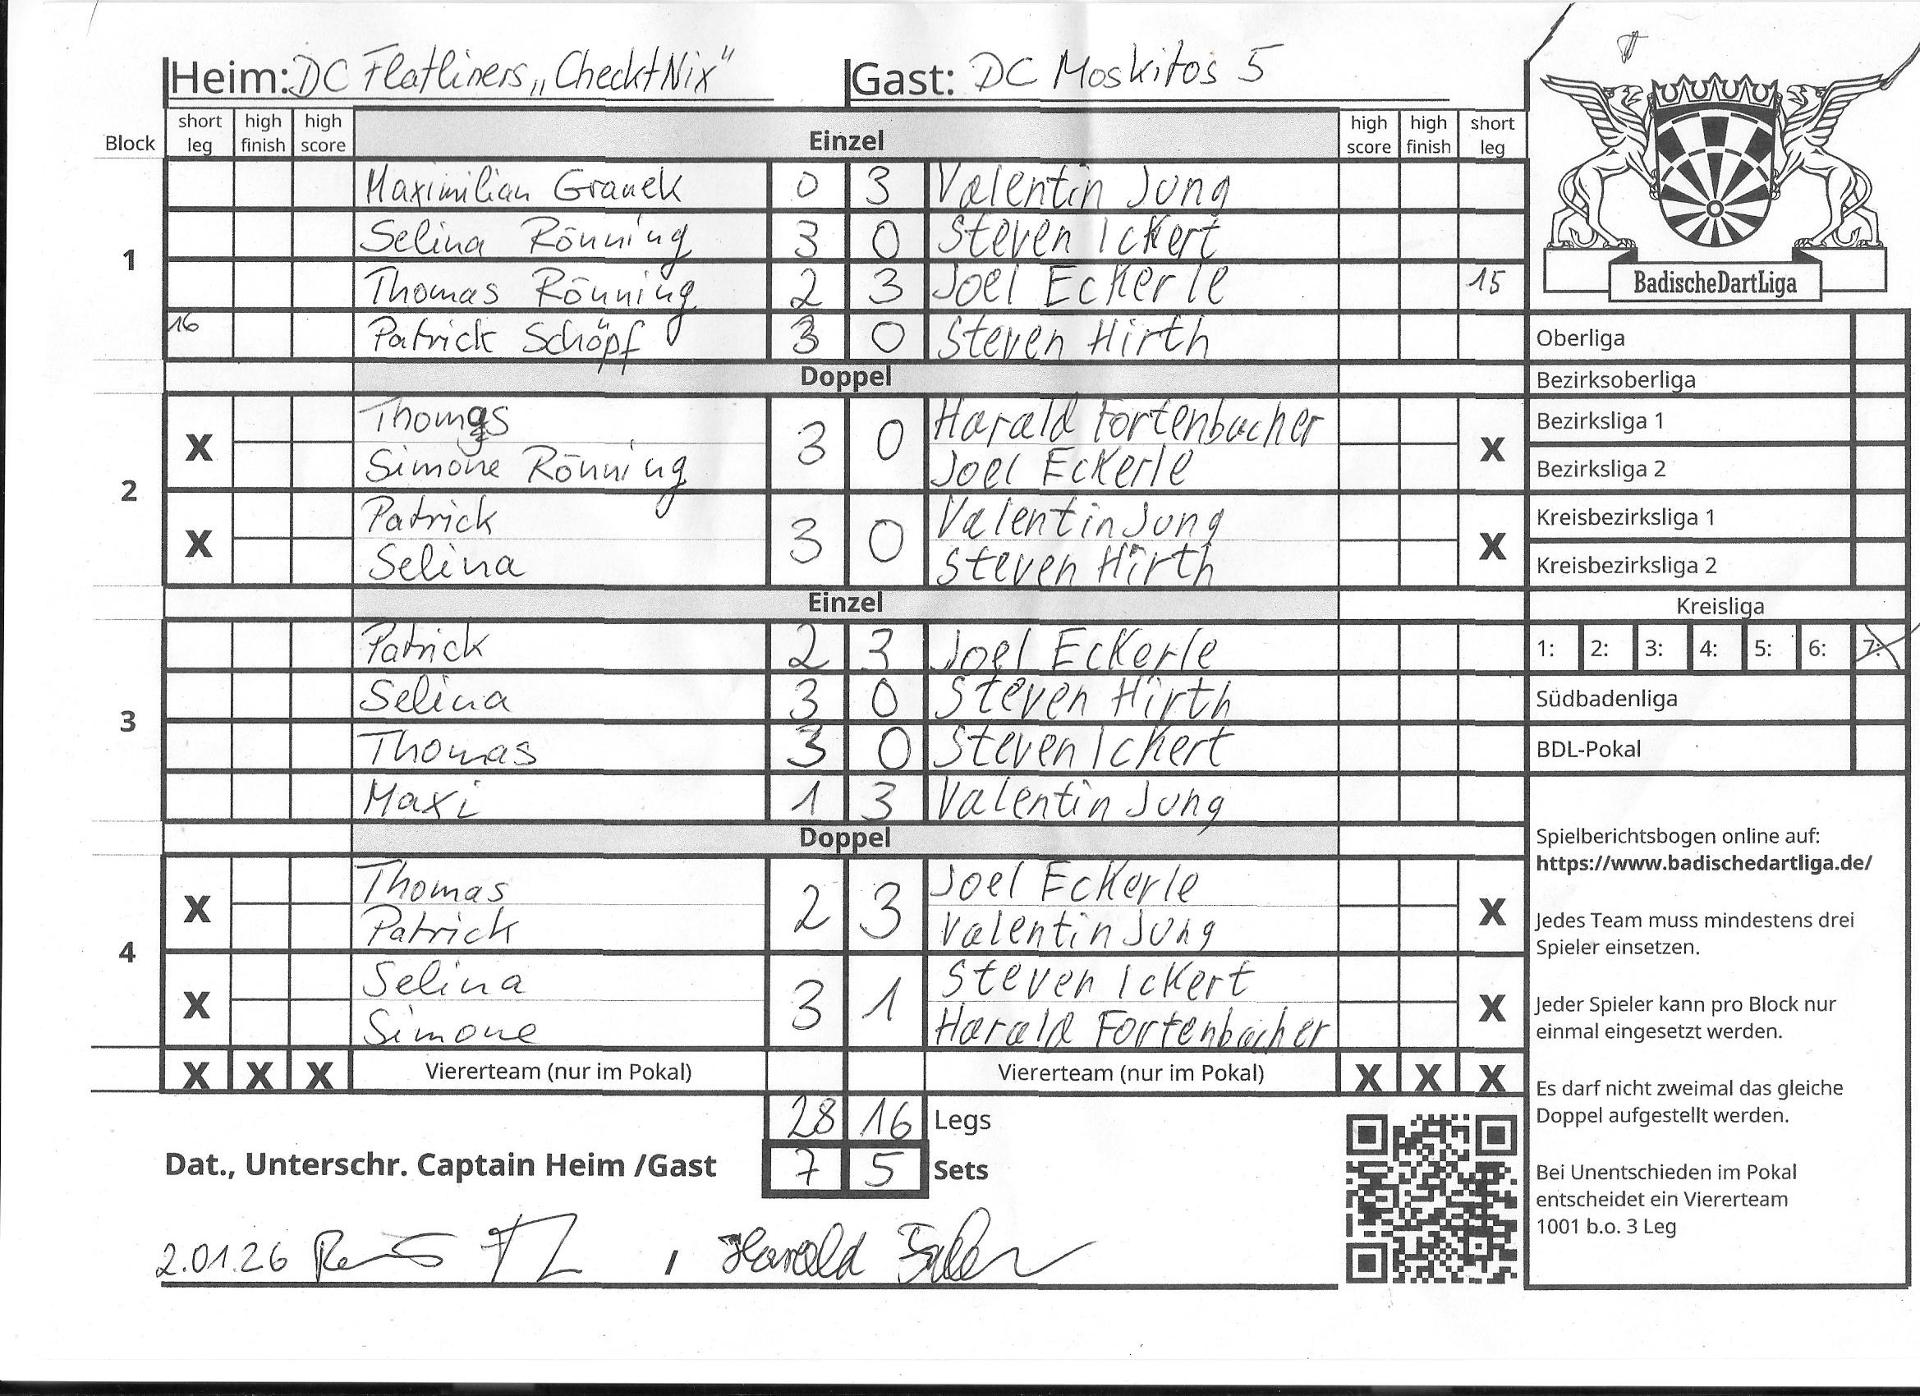 Heim: DC Flatliners „ChecktNix" Gast: DC Moskitos 5
Block short leg high finish high score Einzel high score high finish short leg
1
Maximilian Granek 0 3 Valentin Jung
Selina Rönning 3 0 Steven Ickert
Thomas Rönning 2 3 Joel Eckerle 15
16 Patrick Schöpf 3 0 Steven Hirth
Doppel
2
X Thomas 3 0 Harald Fortenbacher X
Simone Rönning Joel Eckerle
X Patrick 3 0 Valentin Jung X
Selina Steven Hirth
Einzel
3
Patrick 2 3 Joel Eckerle
Selina 3 0 Steven Hirth
Thomas 3 0 Steven Ickert
Maxi 1 3 Valentin Jung
Doppel
4
X Thomas 2 3 Joel Eckerle X
Patrick Valentin Jung
X Selina 3 1 Steven Ickert X
Simone Harald Fortenbacher
X X X Viererteam (nur im Pokal) Viererteam (nur im Pokal) X X X
28 16 Legs
Dat., Unterschr. Captain Heim /Gast 7 5 Sets
2.01.26 , Harald
BadischeDartLiga
Oberliga
Bezirksoberliga
Bezirksliga 1
Bezirksliga 2
Kreisbezirksliga 1
Kreisbezirksliga 2
Kreisliga
1: 2: 3: 4: 5: 6: 7:
Südbadenliga
BDL-Pokal
Spielberichtsbogen online auf:
https://www.badischedartliga.de/
Jedes Team muss mindestens drei
Spieler einsetzen.
Jeder Spieler kann pro Block nur
einmal eingesetzt werden.
Es darf nicht zweimal das gleiche
Doppel aufgestellt werden.
Bei Unentschieden im Pokal
entscheidet ein Viererteam
1001 b.o. 3 Leg